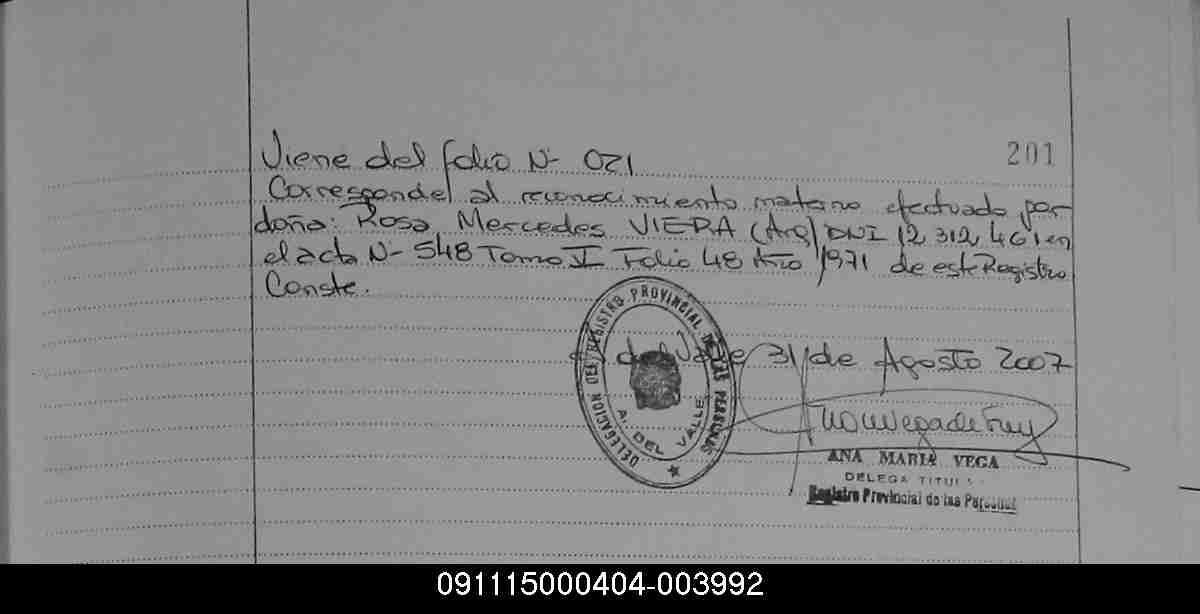 201
Viene del folio N- 021
Corresponde al reconocimiento materno efectuado por
doña: Rosa Mercedes VIERA (Arg) DNI 12 312 461 en
el acta N- 548 Tomo I Folio 48 Año 1971 de este Registro
Conste.
del Valle 31 de Agosto 2007
DELEGACION DEL REGISTRO PROVINCIAL DE LAS PERSONAS
A. DEL VALLE
ANA MARIA VEGA
DELEGA TITUL
Registro Provincial de las Personas
091115000404-003992